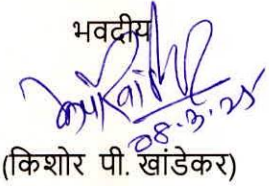 भवदीय
08.3.25
(किशोर पी. खांडेकर)